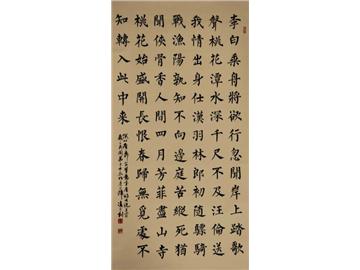 李白乘舟將欲行忽聞岸上踏歌
聲桃花潭水深千尺不及汪倫送
我情出身仕漢羽林郎初隨驃騎
戰漁陽孰知不向邊庭苦縱死猶
聞俠骨香人間四月芳菲盡山寺
桃花始盛開長恨春歸無覓處不
知轉入此中來